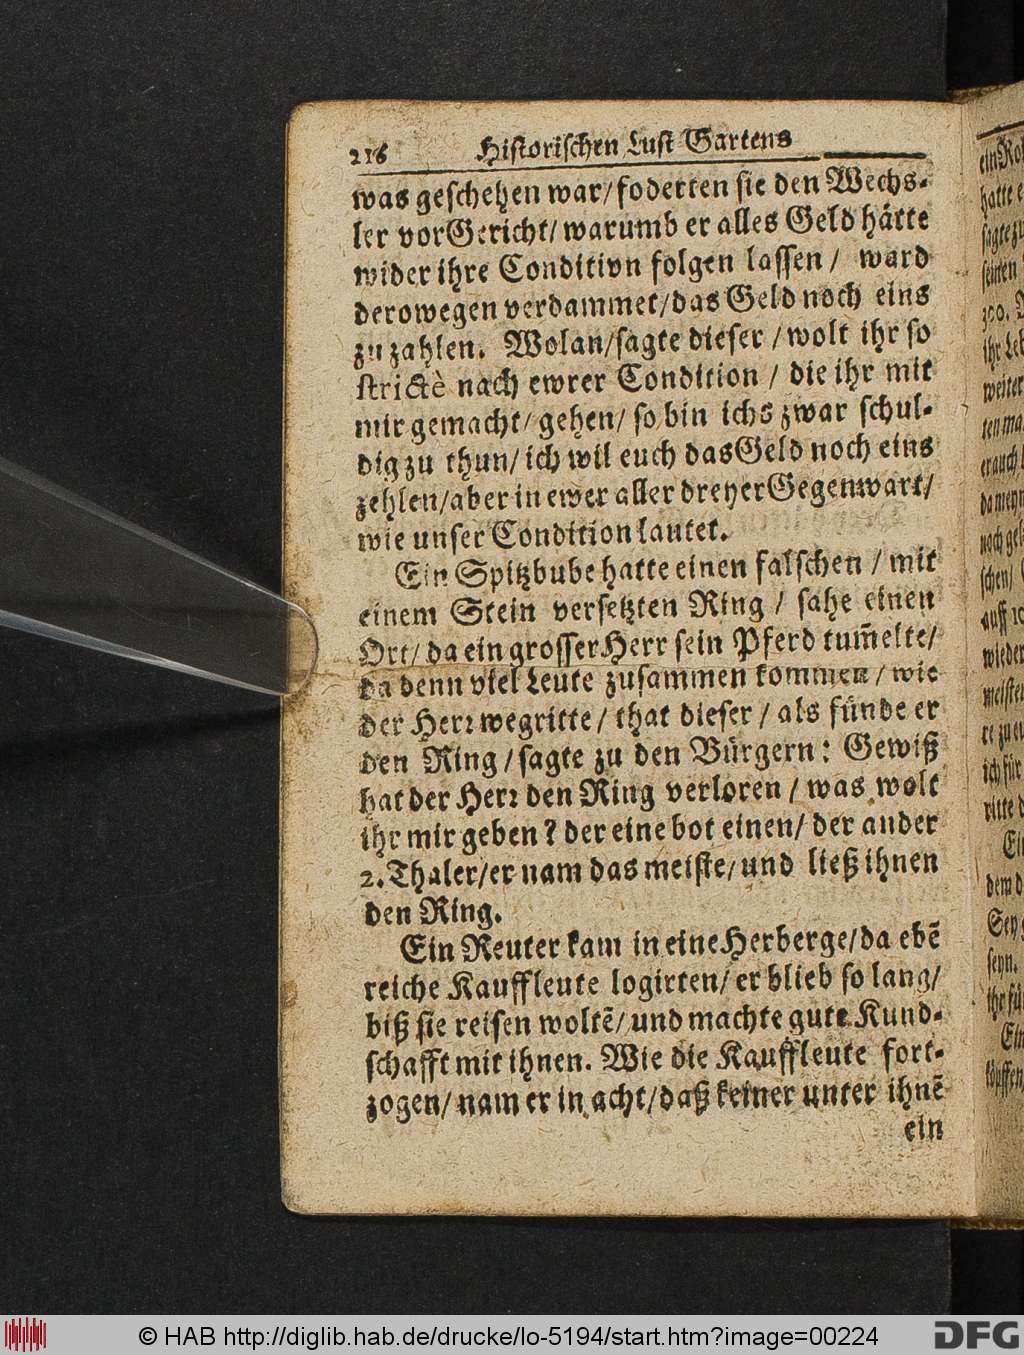 216 Historischen Lust Gartens
was geschehen war/ foderten sie den Wechs-
ler vor Gericht/ warumb er alles Geld hätte
wider ihre Condition folgen lassen / ward
derowegen verdammet/ das Geld noch eins
zu zahlen. Wolan/ sagte dieser / wolt ihr so
strictè nach ewrer Condition / die ihr mit
mir gemacht/ gehen/ so bin ichs zwar schul-
dig zu thun/ ich wil euch das Geld noch eins
zehlen/ aber in ewer aller dreyer Gegenwart/
wie unser Condition lautet.
Ein Spitzbube hatte einen falschen / mit
einem Stein versetzten Ring / sahe einen
Ort/ da ein grosser Herr sein Pferd tum̃elte/
da denn viel Leute zusammen kommen / wie
der Herr wegritte/ that dieser / als fünde er
den Ring / sagte zu den Bürgern: Gewiß
hat der Herr den Ring verloren / was wolt
ihr mir geben? der eine bot einen/ der ander
2. Thaler/ er nam das meiste/ und ließ ihnen
den Ring.
Ein Reuter kam in eine Herberge/ da ebẽ
reiche Kauffleute logirten/ er blieb so lang/
biß sie reisen woltẽ/ und machte gute Kund-
schafft mit ihnen. Wie die Kauffleute fort-
zogen/ nam er in acht/ daß keiner unter ihnẽ
ein
© HAB http://diglib.hab.de/drucke/lo-5194/start.htm?image=00224
DFG